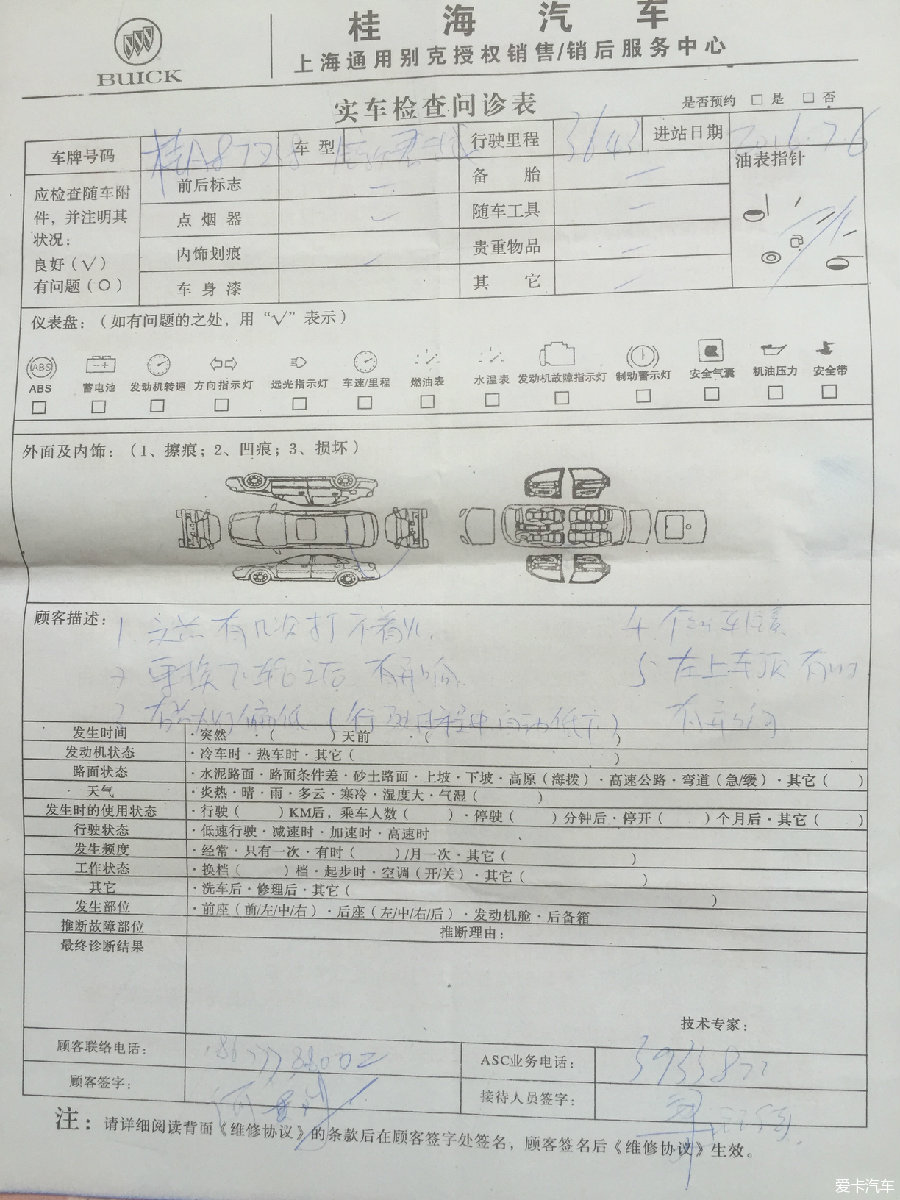 BUICK
桂海汽车
上海通用别克授权销售/销后服务中心
实车检查问诊表
是否预约 □ 是 □ 否
车牌号码 车型 行驶里程 3643 进站日期 2016.7.6
应检查随车附件，并注明其状况：
良好（√）
有问题（○）
前后标志 备胎 油表指针
点烟器 随车工具
内饰划痕 贵重物品
车身漆 其它
仪表盘：（如有问题的之处，用“√”表示）
ABS
ABS 蓄电池 发动机转速 方向指示灯 远光指示灯 车速/里程 燃油表 水温表 发动机故障指示灯 制动警示灯 安全气囊 机油压力 安全带
外面及内饰：（1、擦痕；2、凹痕；3、损坏）
顾客描述：
1 有几次打不着火 4
更换下 之后 有异响 5 左上车顶有
偏低（行驶过程中 ） 有异响
发生时间 ·突然 （ ）天前 （ ）
发动机状态 ·冷车时·热车时·其它（ ）
路面状态 ·水泥路面·路面条件差·砂土路面·上坡·下坡·高原（海拨）·高速公路·弯道（急/缓）·其它（ ）
天气 ·炎热·晴·雨·多云·寒冷·湿度大·气温（ ）
发生时的使用状态 ·行驶（ ）KM后，乘车人数（ ）·停驶（ ）分钟后·停开（ ）个月后·其它（ ）
行驶状态 ·低速行驶·减速时·加速时·高速时
发生频度 ·经常·只有一次·有时（ ）/月一次·其它（ ）
工作状态 ·换档（ ）档·起步时·空调（开/关）·其它（ ）
其它 ·洗车后·修理后·其它（ ）
发生部位 ·前座（前/左/中/右）·后座（左/中/右/后）·发动机舱·后备箱
推断故障部位 推断理由：
最终诊断结果
技术专家：
顾客联络电话： ASC业务电话：
顾客签字： 接待人员签字：
注：请详细阅读背面《维修协议》的条款后在顾客签字处签名，顾客签名后《维修协议》生效。
爱卡汽车